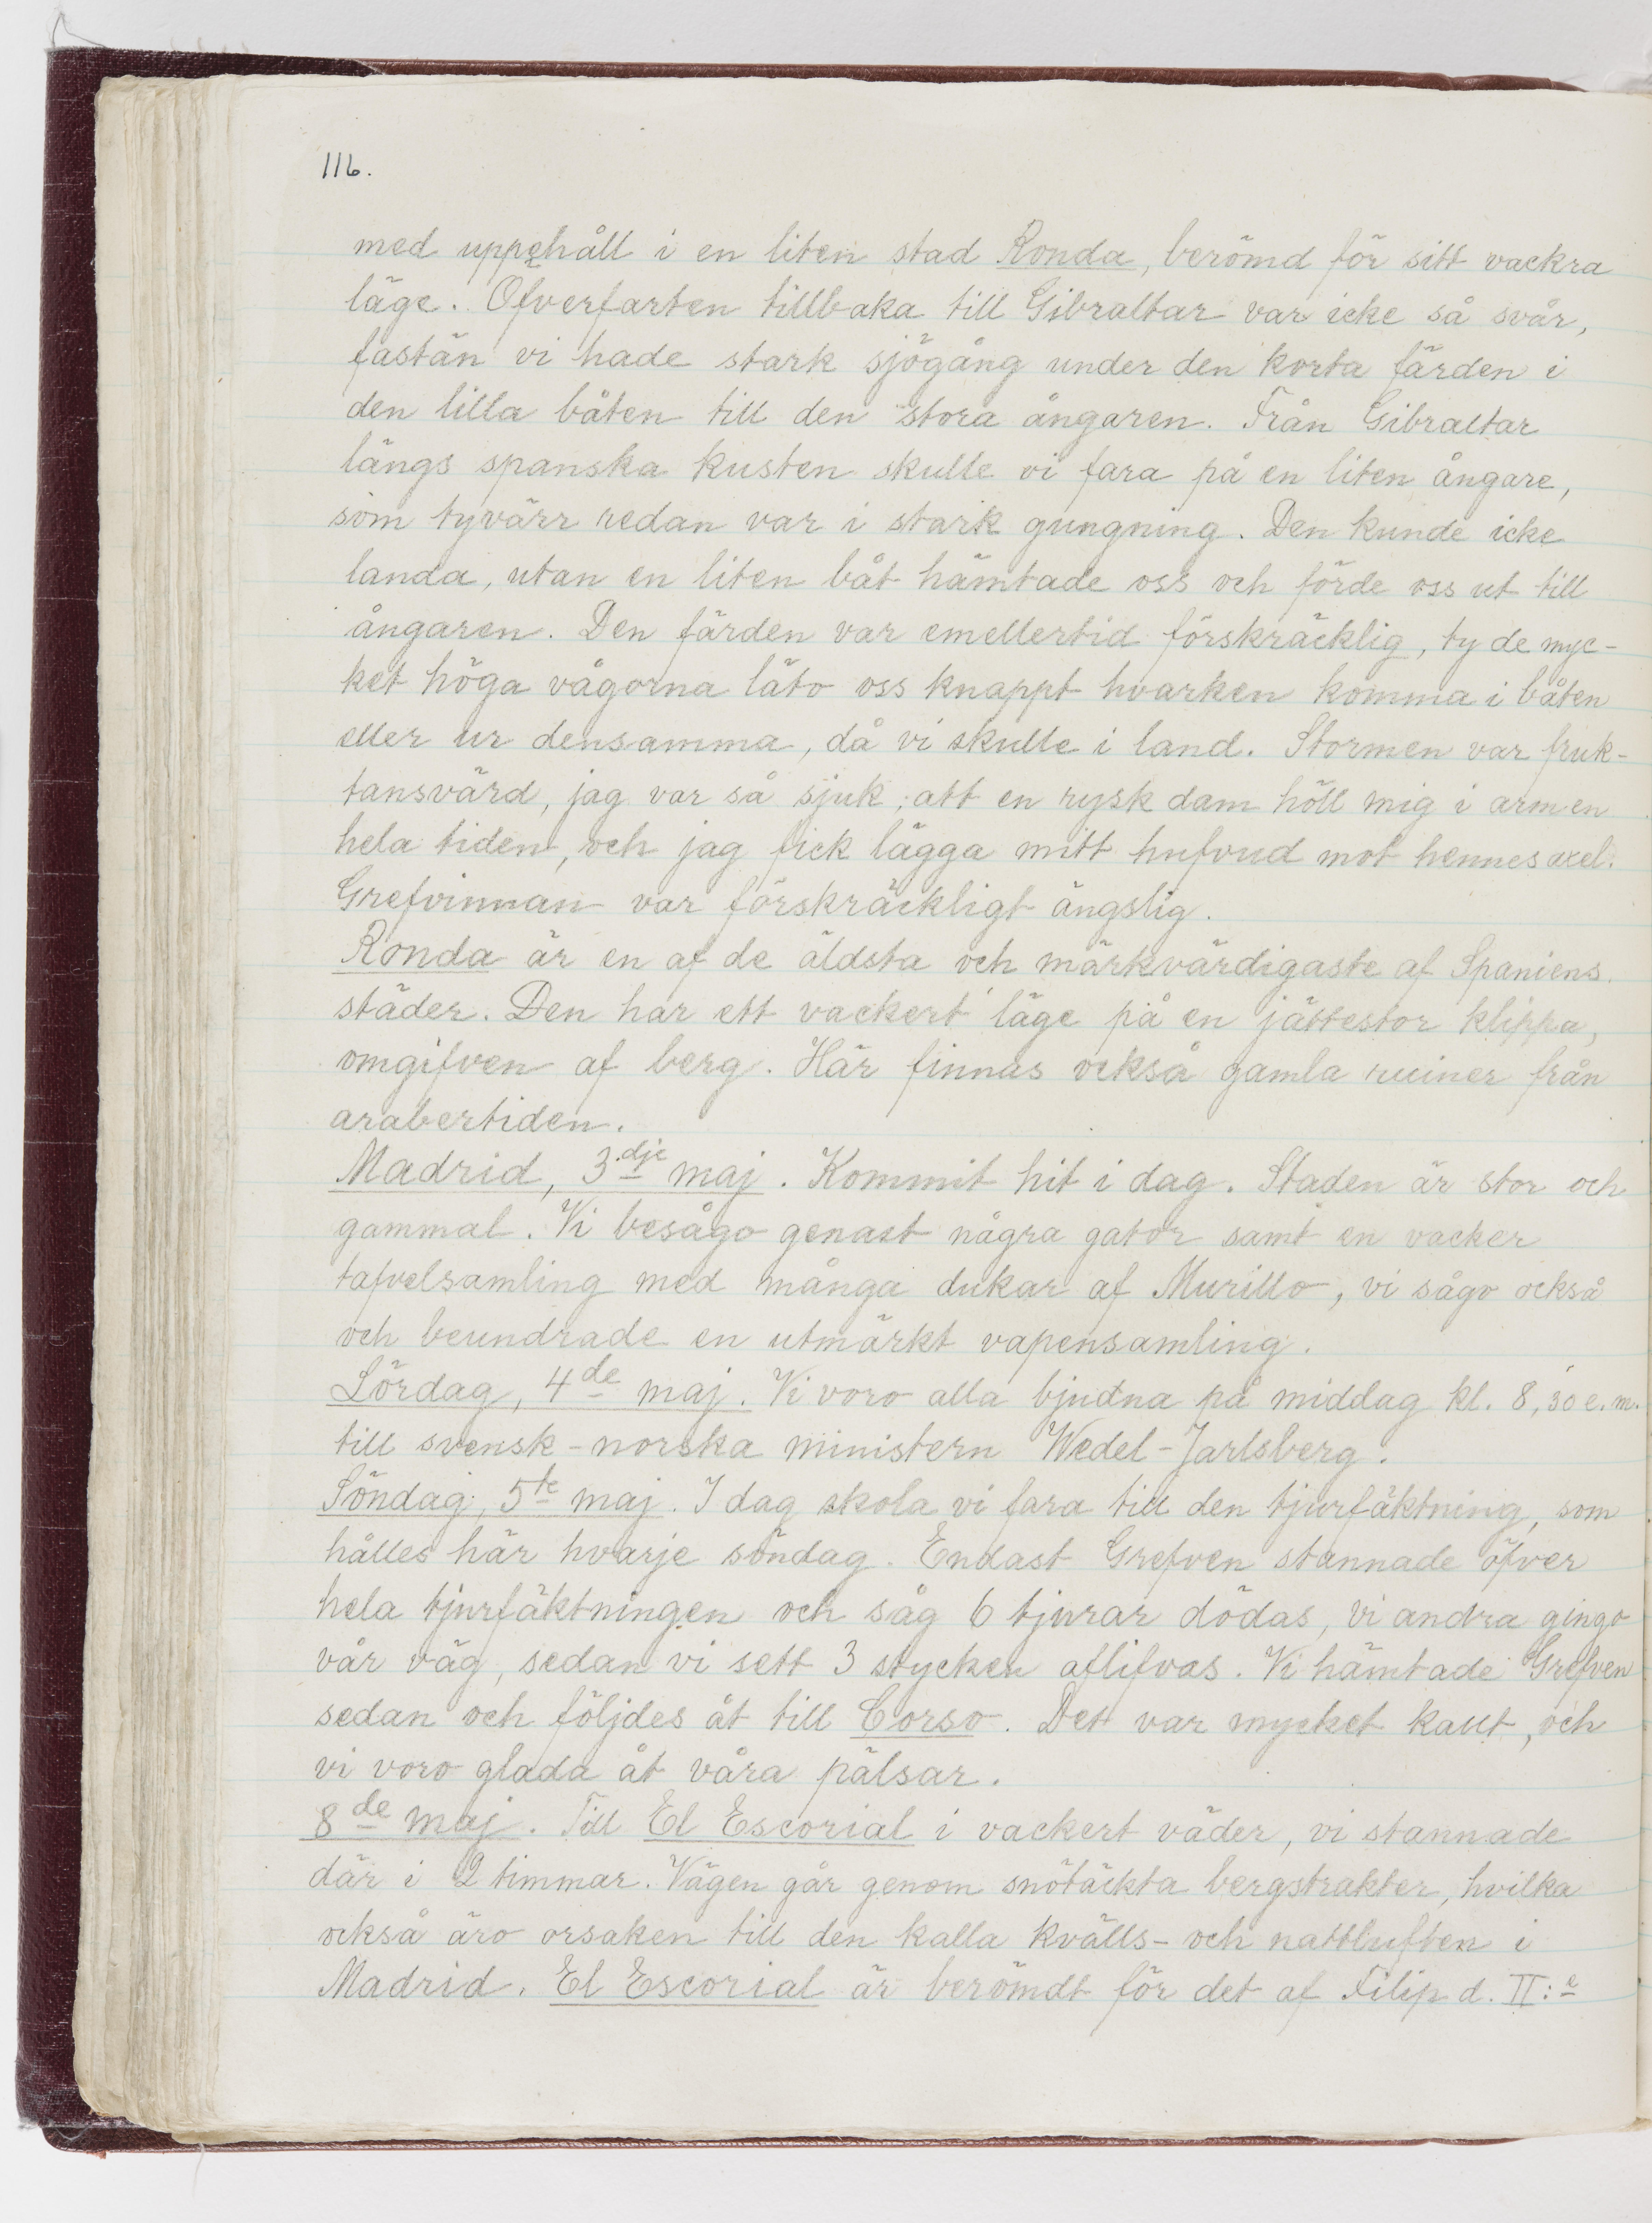 116.
med uppehåll i en liten stad Ronda, berömd för sitt vackra
läge. Öfverfarten tillbaka till Gibraltar var icke så svår,
fastän vi hade stark sjögång under den korta färden i
den lilla båten till den stora ångaren. Från Gibraltar
längs spanska kusten skulle vi fara på en liten ångare,
som tyvärr redan var i stark gungning. Den kunde icke
landa, utan en liten båt hämtade oss och förde oss ut till
ångaren. Den färden var emellertid förskräcklig, ty de myc-
ket höga vågorna läto oss knappt hvarken komma i båten
eller ur densamma, då vi skulle i land. Stormen var fruk-
tansvärd, jag var så sjuk, att en rysk dam höll mig i armen
hela tiden, och jag fick lägga mitt hufvud mot hennes axel.
Grefvinnan var förskräckligt ängslig.
Ronda är en af de äldsta och märkvärdigaste af Spaniens
städer. Den har ett vackert läge på en jättestor klippa,
omgifven af berg. Här finnas också gamla ruiner från
arabertiden.
Madrid, 3dje maj. Kommit hit i dag. Staden är stor och
gammal. Vi besågo genast några gator samt en vacker
tafvelsamling med många dukar af Murillo, vi sågo också
och beundrade en utmärkt vapensamling.
Lördag, 4de maj. Vi voro alla bjudna på middag kl. 8,30 e.m.
till svensk-norska ministern Wedel-Jarlsberg.
Söndag, 5te maj. I dag skola vi fara till den tjurfäktning, som
hålles här hvarje söndag. Endast Grefven stannade öfver
hela tjurfäktningen och såg 6 tjurar dödas, vi andra gingo
vår väg, sedan vi sett 3 stycken aflifvas. Vi hämtade Grefven
sedan och följdes åt till Corso. Det var mycket kallt, och
vi voro glada åt våra pälsar.
8de maj. Till El Escorial i vackert väder, vi stannade
där i 2 timmar. Vägen går genom snötäckta bergstrakter, hvilka
också äro orsaken till den kalla kvälls- och nattluften i
Madrid. El Escorial är berömdt för det af Filip d. II:e